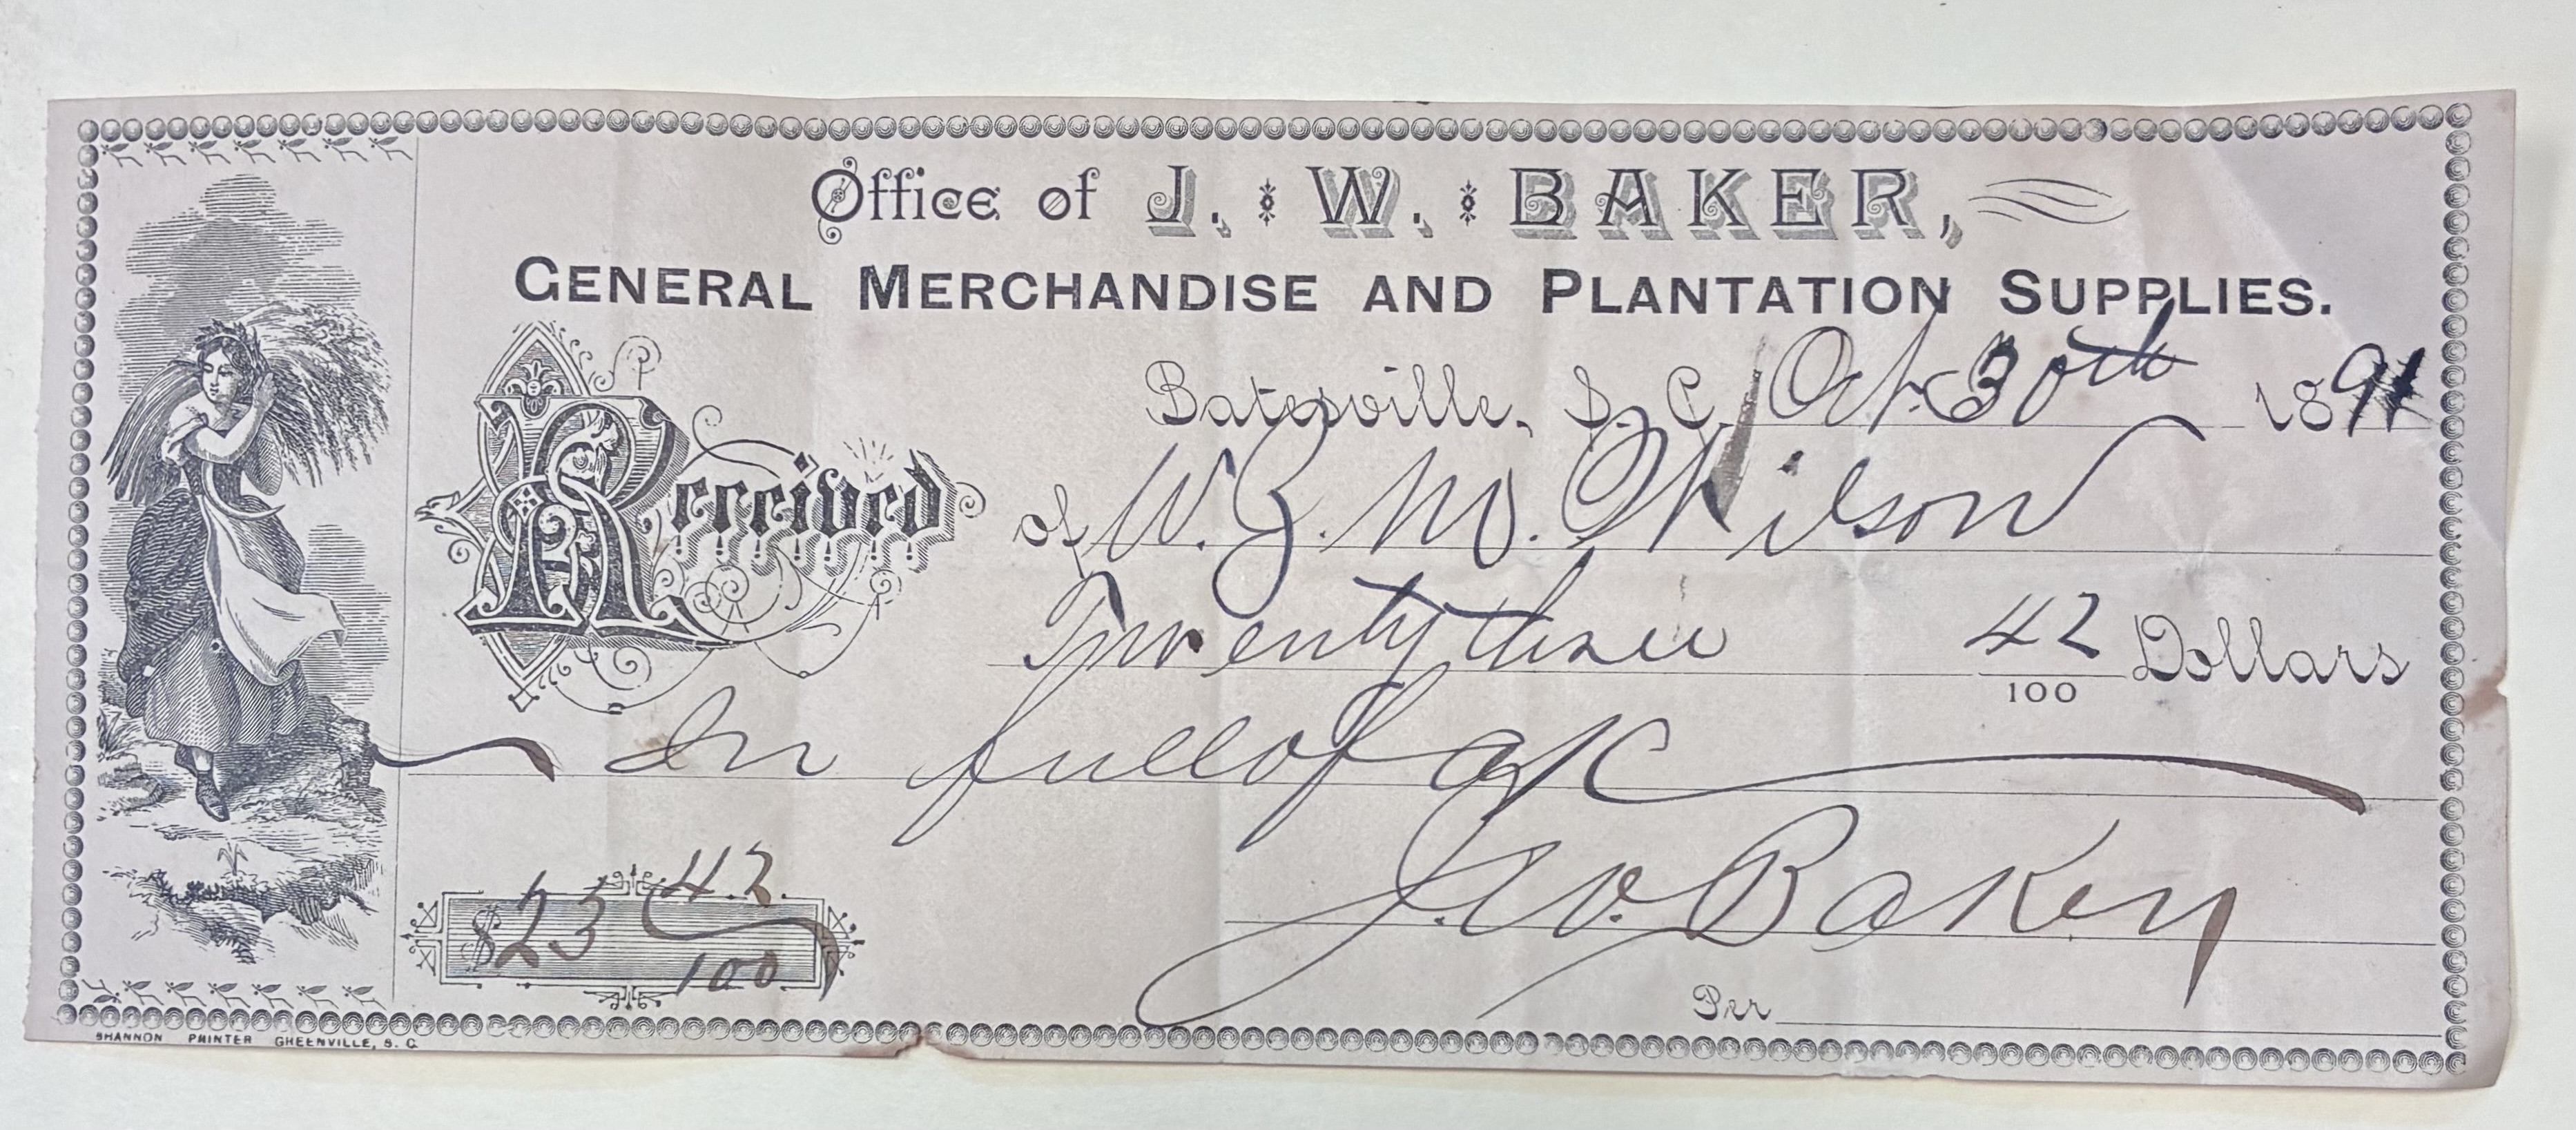 Office of J. W. BAKER,
GENERAL MERCHANDISE AND PLANTATION SUPPLIES.
Batesville, S. C. Oct. 30th 1891
Received of W. Z. M. Wilson
Twenty three 42/100 Dollars
In full of a/c
$23 42/100
J. W. Baker
Per
SHANNON PRINTER GREENVILLE, S. C.